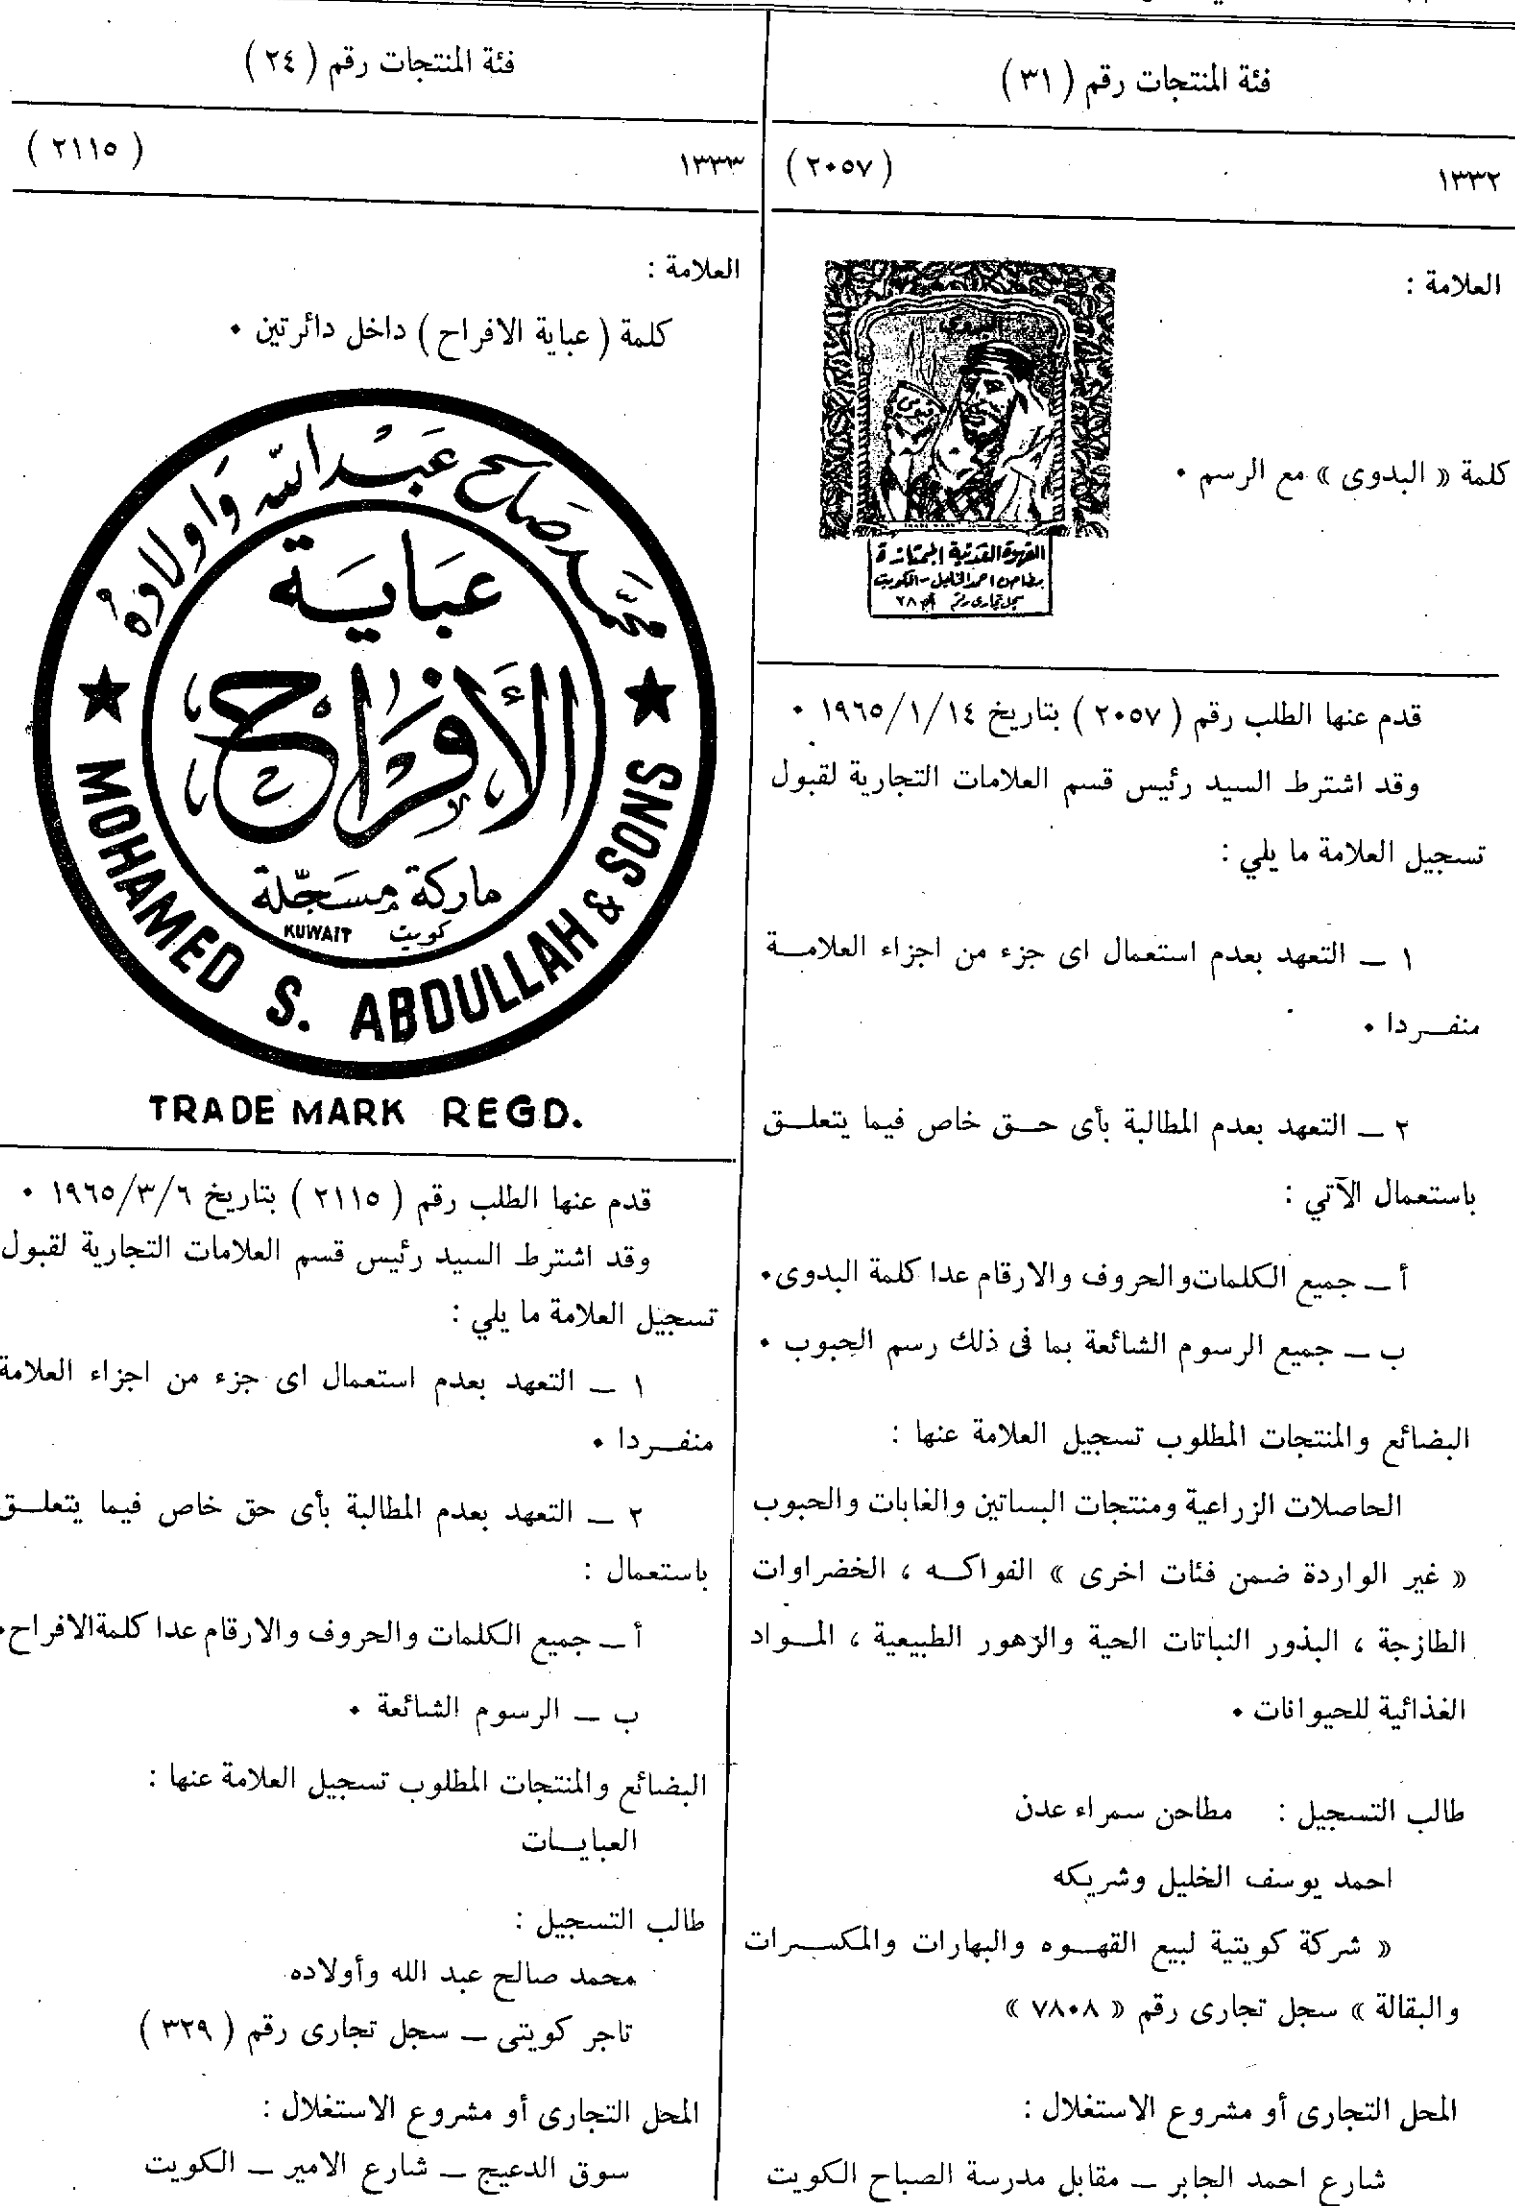 فئة المنتجات رقم ( ٣١ )
١٣٣٢ ( ٢٠٥٧ )
العلامة :
البدوي
كلمة « البدوى » مع الرسم ٠
القهوة العدنية الممتازة
احمد الخليل - الكويت
سجل تجارى رقم
قدم عنها الطلب رقم ( ٢٠٥٧ ) بتاريخ ١٩٦٥/١/١٤ ٠
وقد اشترط السيد رئيس قسم العلامات التجارية لقبول
تسجيل العلامة ما يلي :
١ ــ التعهد بعدم استعمال اى جزء من اجزاء العلامـــة
منفـــردا ٠
٢ ــ التعهد بعدم المطالبة بأى حـــق خاص فيما يتعلـــق
باستعمال الآتي :
أ ــ جميع الكلمات والحروف والارقام عدا كلمة البدوى ٠
ب ــ جميع الرسوم الشائعة بما فى ذلك رسم الحبوب ٠
البضائع والمنتجات المطلوب تسجيل العلامة عنها :
الحاصلات الزراعية ومنتجات البساتين والغابات والحبوب
« غير الواردة ضمن فئات اخرى » الفواكـــه ، الخضراوات
الطازجة ، البذور النباتات الحية والزهور الطبيعية ، المـــواد
الغذائية للحيوانات ٠
طالب التسجيل : مطاحن سمراء عدن
احمد يوسف الخليل وشريكه
« شركة كويتية لبيع القهـــوه والبهارات والمكســـرات
والبقالة » سجل تجارى رقم « ٧٨٠٨ »
المحل التجارى أو مشروع الاستغلال :
شارع احمد الجابر ــ مقابل مدرسة الصباح الكويت
فئة المنتجات رقم ( ٢٤ )
١٣٣٣ ( ٢١١٥ )
العلامة :
كلمة ( عباية الافراح ) داخل دائرتين ٠
محمد صالح عبد الله واولاده
عباية
الأفراح
ماركة مسجلة
كويت KUWAIT
MOHAMED S. ABDULLAH & SONS
TRADE MARK REGD.
قدم عنها الطلب رقم ( ٢١١٥ ) بتاريخ ١٩٦٥/٣/٦ ٠
وقد اشترط السيد رئيس قسم العلامات التجارية لقبول
تسجيل العلامة ما يلي :
١ ــ التعهد بعدم استعمال اى جزء من اجزاء العلامة
منفـــردا ٠
٢ ــ التعهد بعدم المطالبة بأى حق خاص فيما يتعلـــق
باستعمال :
أ ــ جميع الكلمات والحروف والارقام عدا كلمة الافراح ٠
ب ــ الرسوم الشائعة ٠
البضائع والمنتجات المطلوب تسجيل العلامة عنها :
العبايـــات
طالب التسجيل :
محمد صالح عبد الله وأولاده
تاجر كويتى ــ سجل تجارى رقم ( ٣٢٩ )
المحل التجارى أو مشروع الاستغلال :
سوق الدعيج ــ شارع الامير ــ الكويت